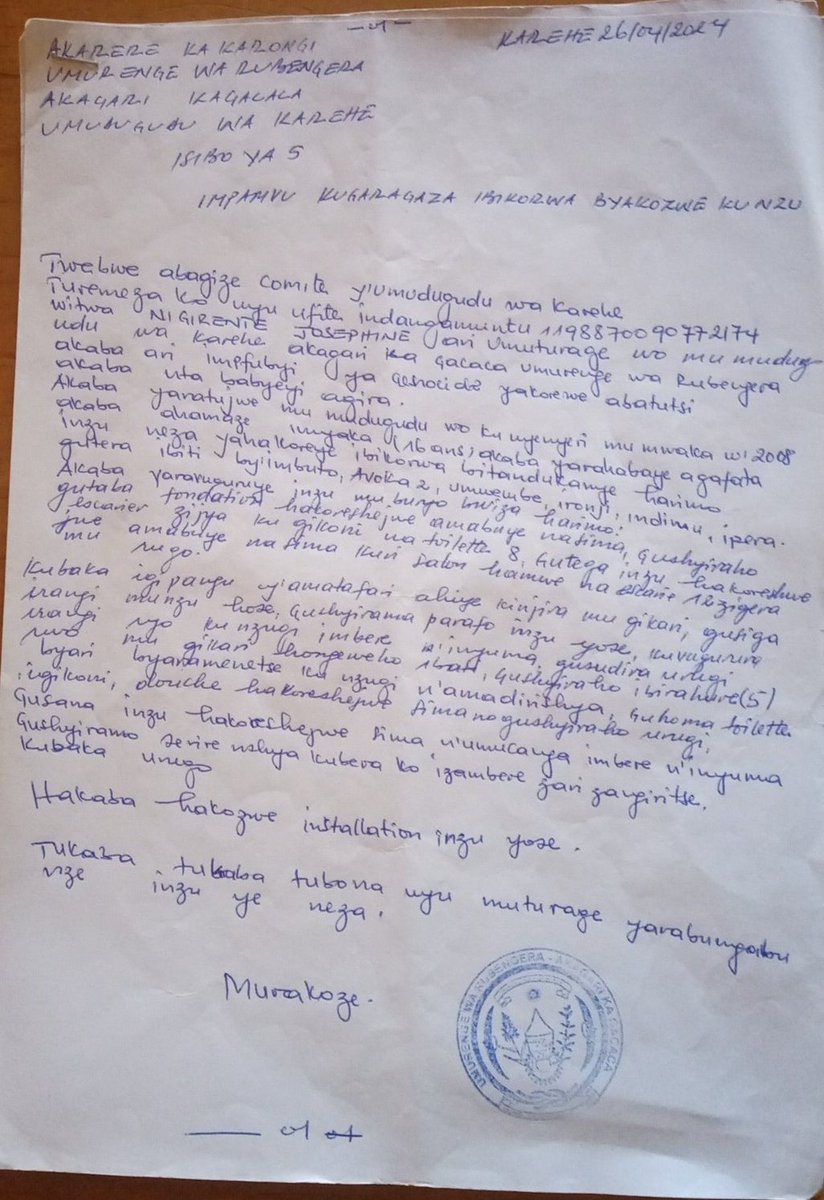 AKARERE KA KARONGI
KAREHE 26/04/2024
UMURENGE WA RUBENGERA
AKAGARI KAGACACA
UMUDUGUDU WA KAREHE
ISIBO YA 5
IMPAMVU KUGARAGAZA IBIKORWA BYAKOZWE KU NZU
Twebwe abagize comite y'umudugudu wa Karehe
Turemeza ko uyu ufite indangamuntu
witwa NIGIRENTE JOSEPHINE ari umuturage wo mu mudug
udu wa Karehe akagari ka Gacaca umurenge wa Rubengera
akaba ari impfubyi ya Genocide yakorewe abatutsi
akaba nta babyeyi agira.
Akaba yaratujwe mu mudugudu wo ku nyenyeri mu mwaka w' 2008
akaba ahamaze imyaka (16 ans) akaba yarahabaye agafata
inzu neza yahakoreye ibikorwa bitandukanye harimo
gutera ibiti by'imbuto, Avoka 2, umwembe, ironji, indimu, ipera.
Akaba yaravuguruye inzu mu buryo bwiza harimo:
gutaba fondation hakoreshejwe amabuye na sima, Gushyiraho
escarier zijya ku gikoni na toilette 8, Gutega inzu hakoreshwe
jwe amabuye na sima kuri salon hamwe na escarie 12 zigera
mu rugo.
Kubaka igipangu y'amatafari ahiye kinjira mu gikari, gusiga
irangi munzu hose, Gushyirama parafo inzu yose, kuvugurura
irangi ryo ku nzugi imbere n'inyuma, gusudira urugi
rwo mu gikari hongeweho 1bati, Gushyiraho ibirahure (5)
byari byaramenetse ku nzugi n'amadirishya, Guhoma toilette
igikoni, douche hakoreshejwe sima no gushyiraho urugi,
Gusana inzu hakoreshejwe sima n'umucanga imbere n'inyuma
Gushyiramo serire nshya kubera ko izambere zari zangiritse.
Kubaka urugo
Hakaba hakozwe installation inzu yose.
Tukaba tukaba tubona uyu muturage yarabungabu
nze inzu ye neza.
Murakoze.
UMURENGE WA RUBENGERA - AKAGARI KA GACACA